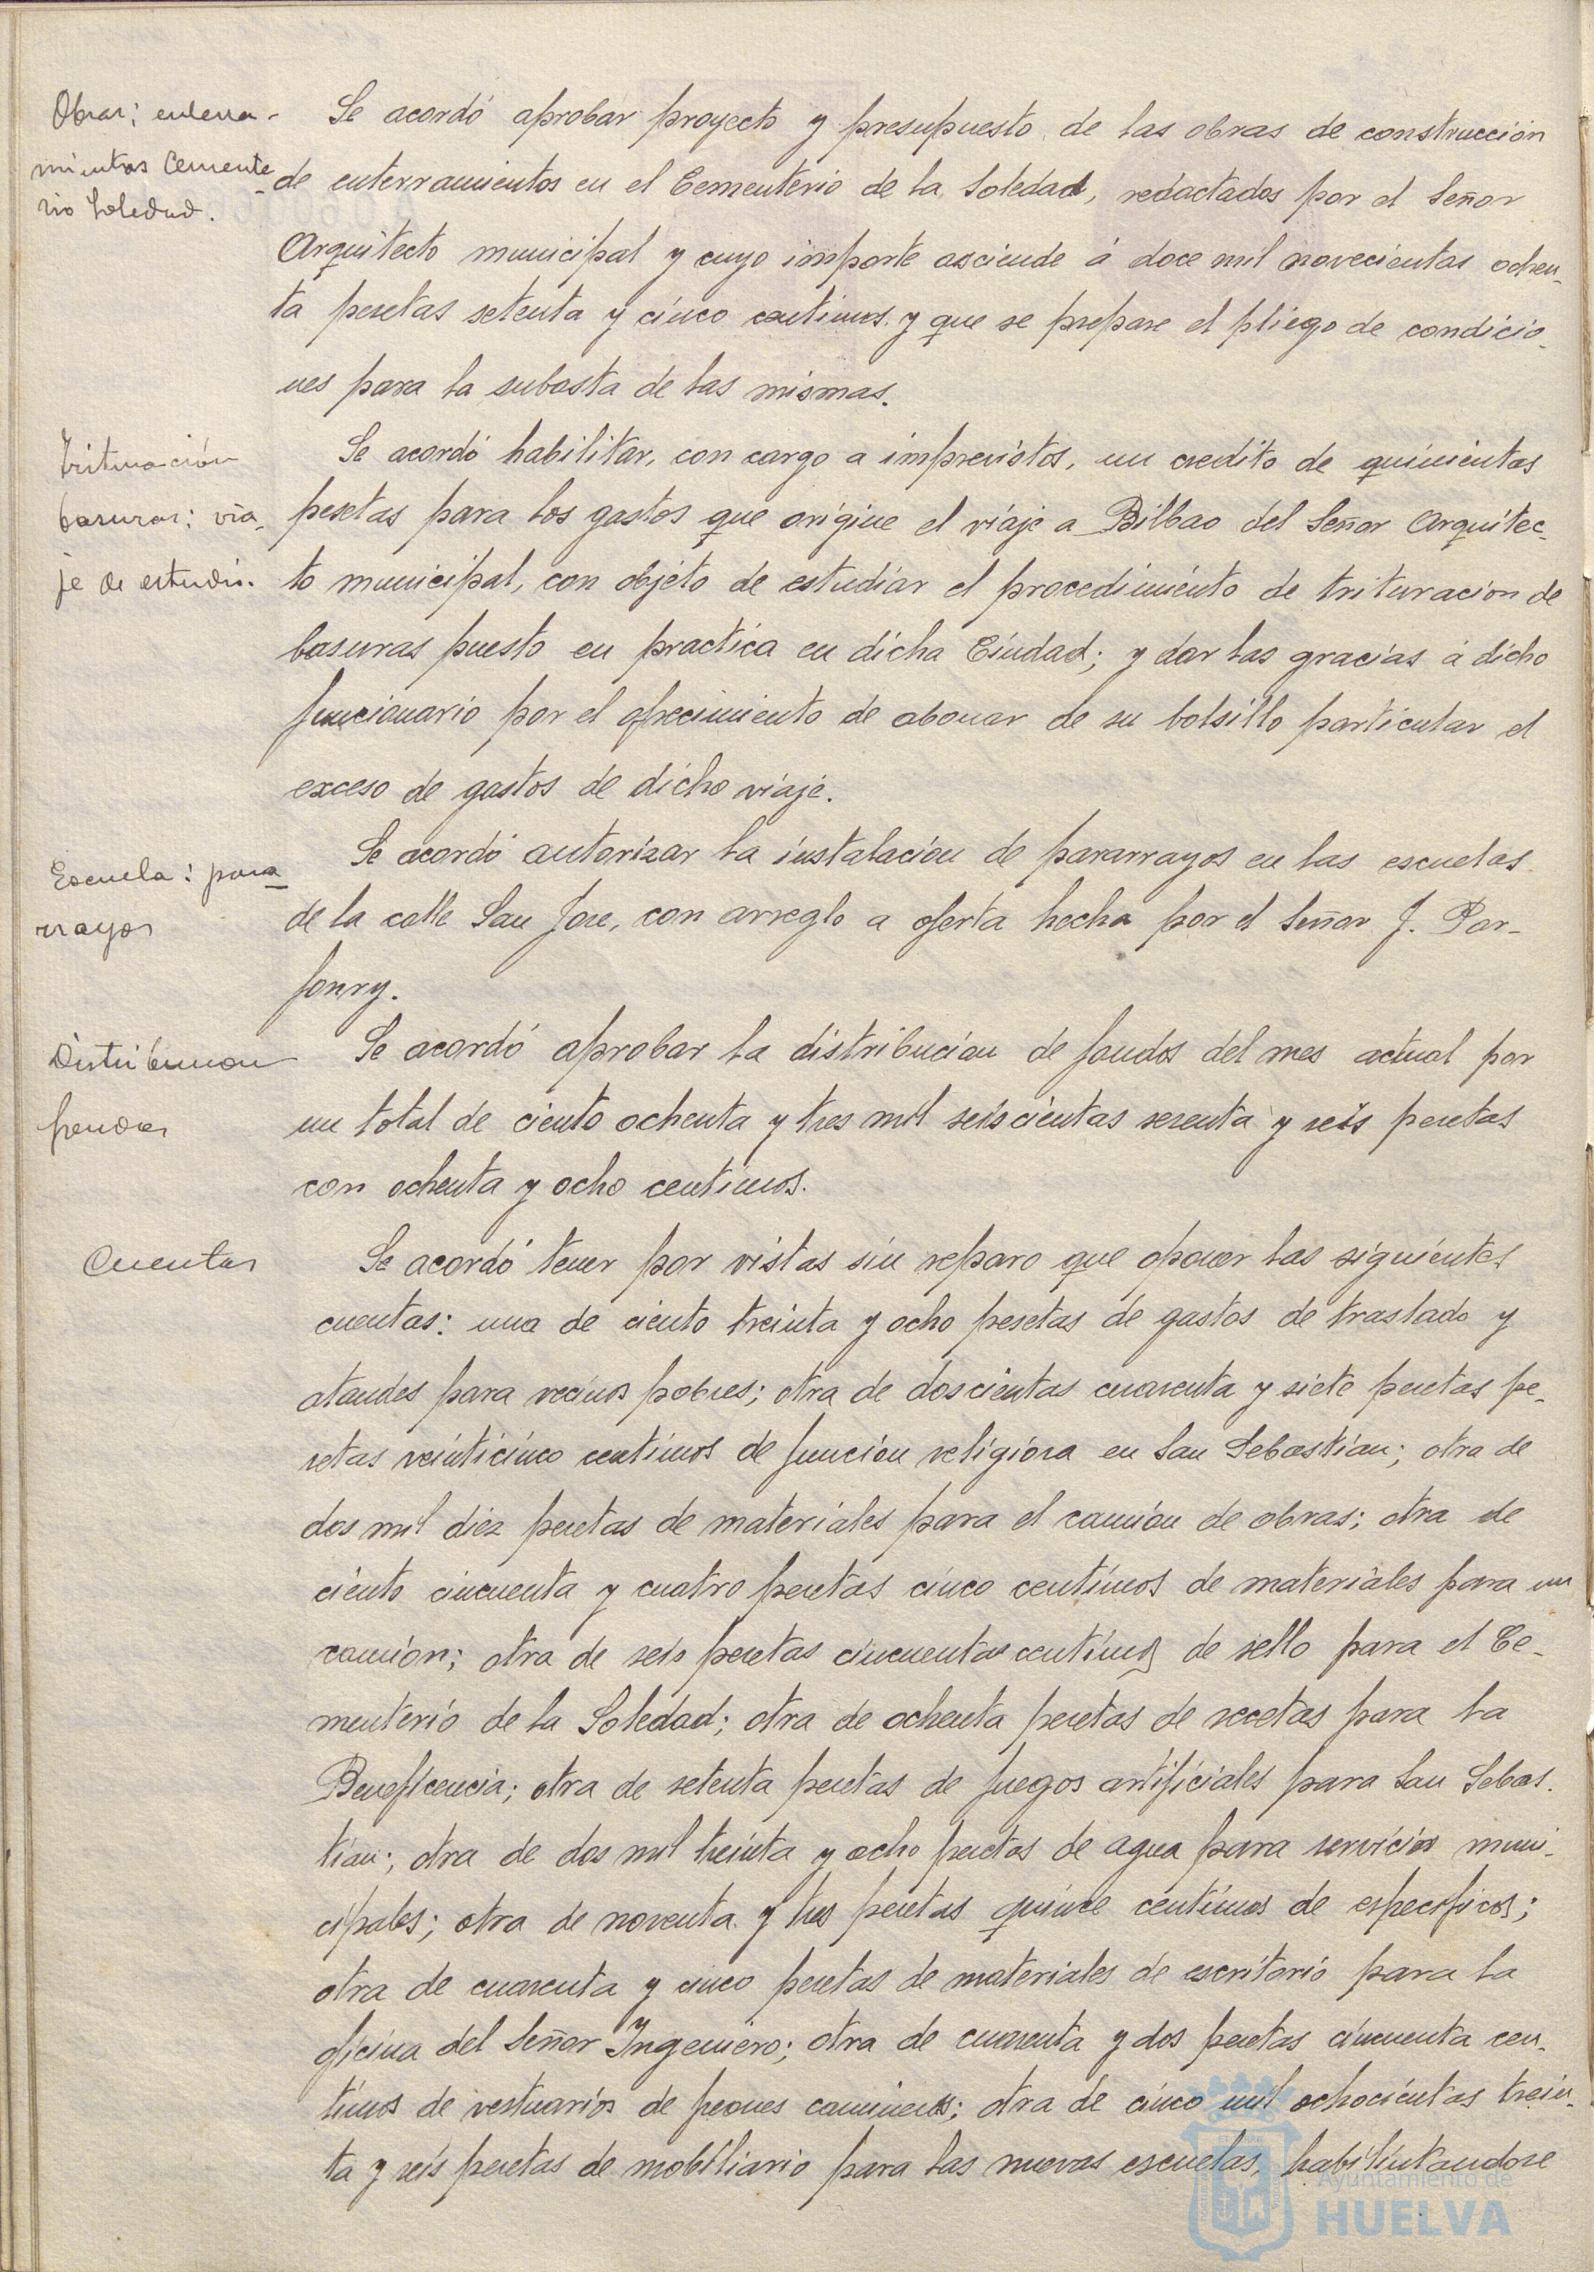 Obras; enterra-
mientos Cemente-
rio Soledad.
Se acordó aprobar proyecto y presupuesto de las obras de construcción
de enterramientos en el Cementerio de la Soledad, redactados por el Señor
Arquitecto municipal y cuyo importe asciende á doce mil novecientas ochen-
ta pesetas setenta y cinco centimos y que se prepare el pliego de condicio-
nes para la subasta de las mismas.
Trituración
basuras; via-
je de estudio.
Se acordó habilitar, con cargo a imprevistos, un credito de quinientas
pesetas para los gastos que origine el viaje a Bilbao del Señor Arquitec-
to municipal, con objeto de estudiar el procedimiento de trituracion de
basuras puesto en practica en dicha Ciudad; y dar las gracias á dicho
funcionario por el ofrecimiento de abonar de su bolsillo particular el
exceso de gastos de dicho viaje.
Escuela: para-
rrayos
Se acordó autorizar la instalación de pararrayos en las escuelas
de la calle San Jose, con arreglo a oferta hecha por el Señor J. Par-
fonry.
Distribucion
fondos
Se acordó aprobar la distribución de fondos del mes actual por
un total de ciento ochenta y tres mil seiscientas sesenta y seis pesetas
con ochenta y ocho centimos.
Cuentas
Se acordó tener por vistas sin reparo que oponer las siguientes
cuentas: una de ciento treinta y ocho pesetas de gastos de traslado y
ataudes para vecinos pobres; otra de doscientas cuarenta y siete pesetas pe-
setas veinticinco centimos de función religiosa en San Sebastian; otra de
dos mil diez pesetas de materiales para el camión de obras; otra de
ciento cincuenta y cuatro pesetas cinco centimos de materiales para un
camion; otra de seis pesetas cincuenta centimos de sello para el Ce-
menterio de la Soledad; otra de ochenta pesetas de recetas para la
Beneficencia; otra de setenta pesetas de fuegos artificiales para San Sebas-
tian; otra de dos mil treinta y ocho pesetas de agua para servicios muni-
cipales; otra de noventa y tres pesetas quince centimos de especificos;
otra de cuarenta y cinco pesetas de materiales de escritorio para la
oficina del Señor Ingeniero; otra de cuarenta y dos pesetas cincuenta cen-
timos de vestuarios de peones camineros; otra de cinco mil ochocientas trein-
ta y seis pesetas de mobiliario para las nuevas escuelas, habilintandose
Ayuntamiento de
HUELVA